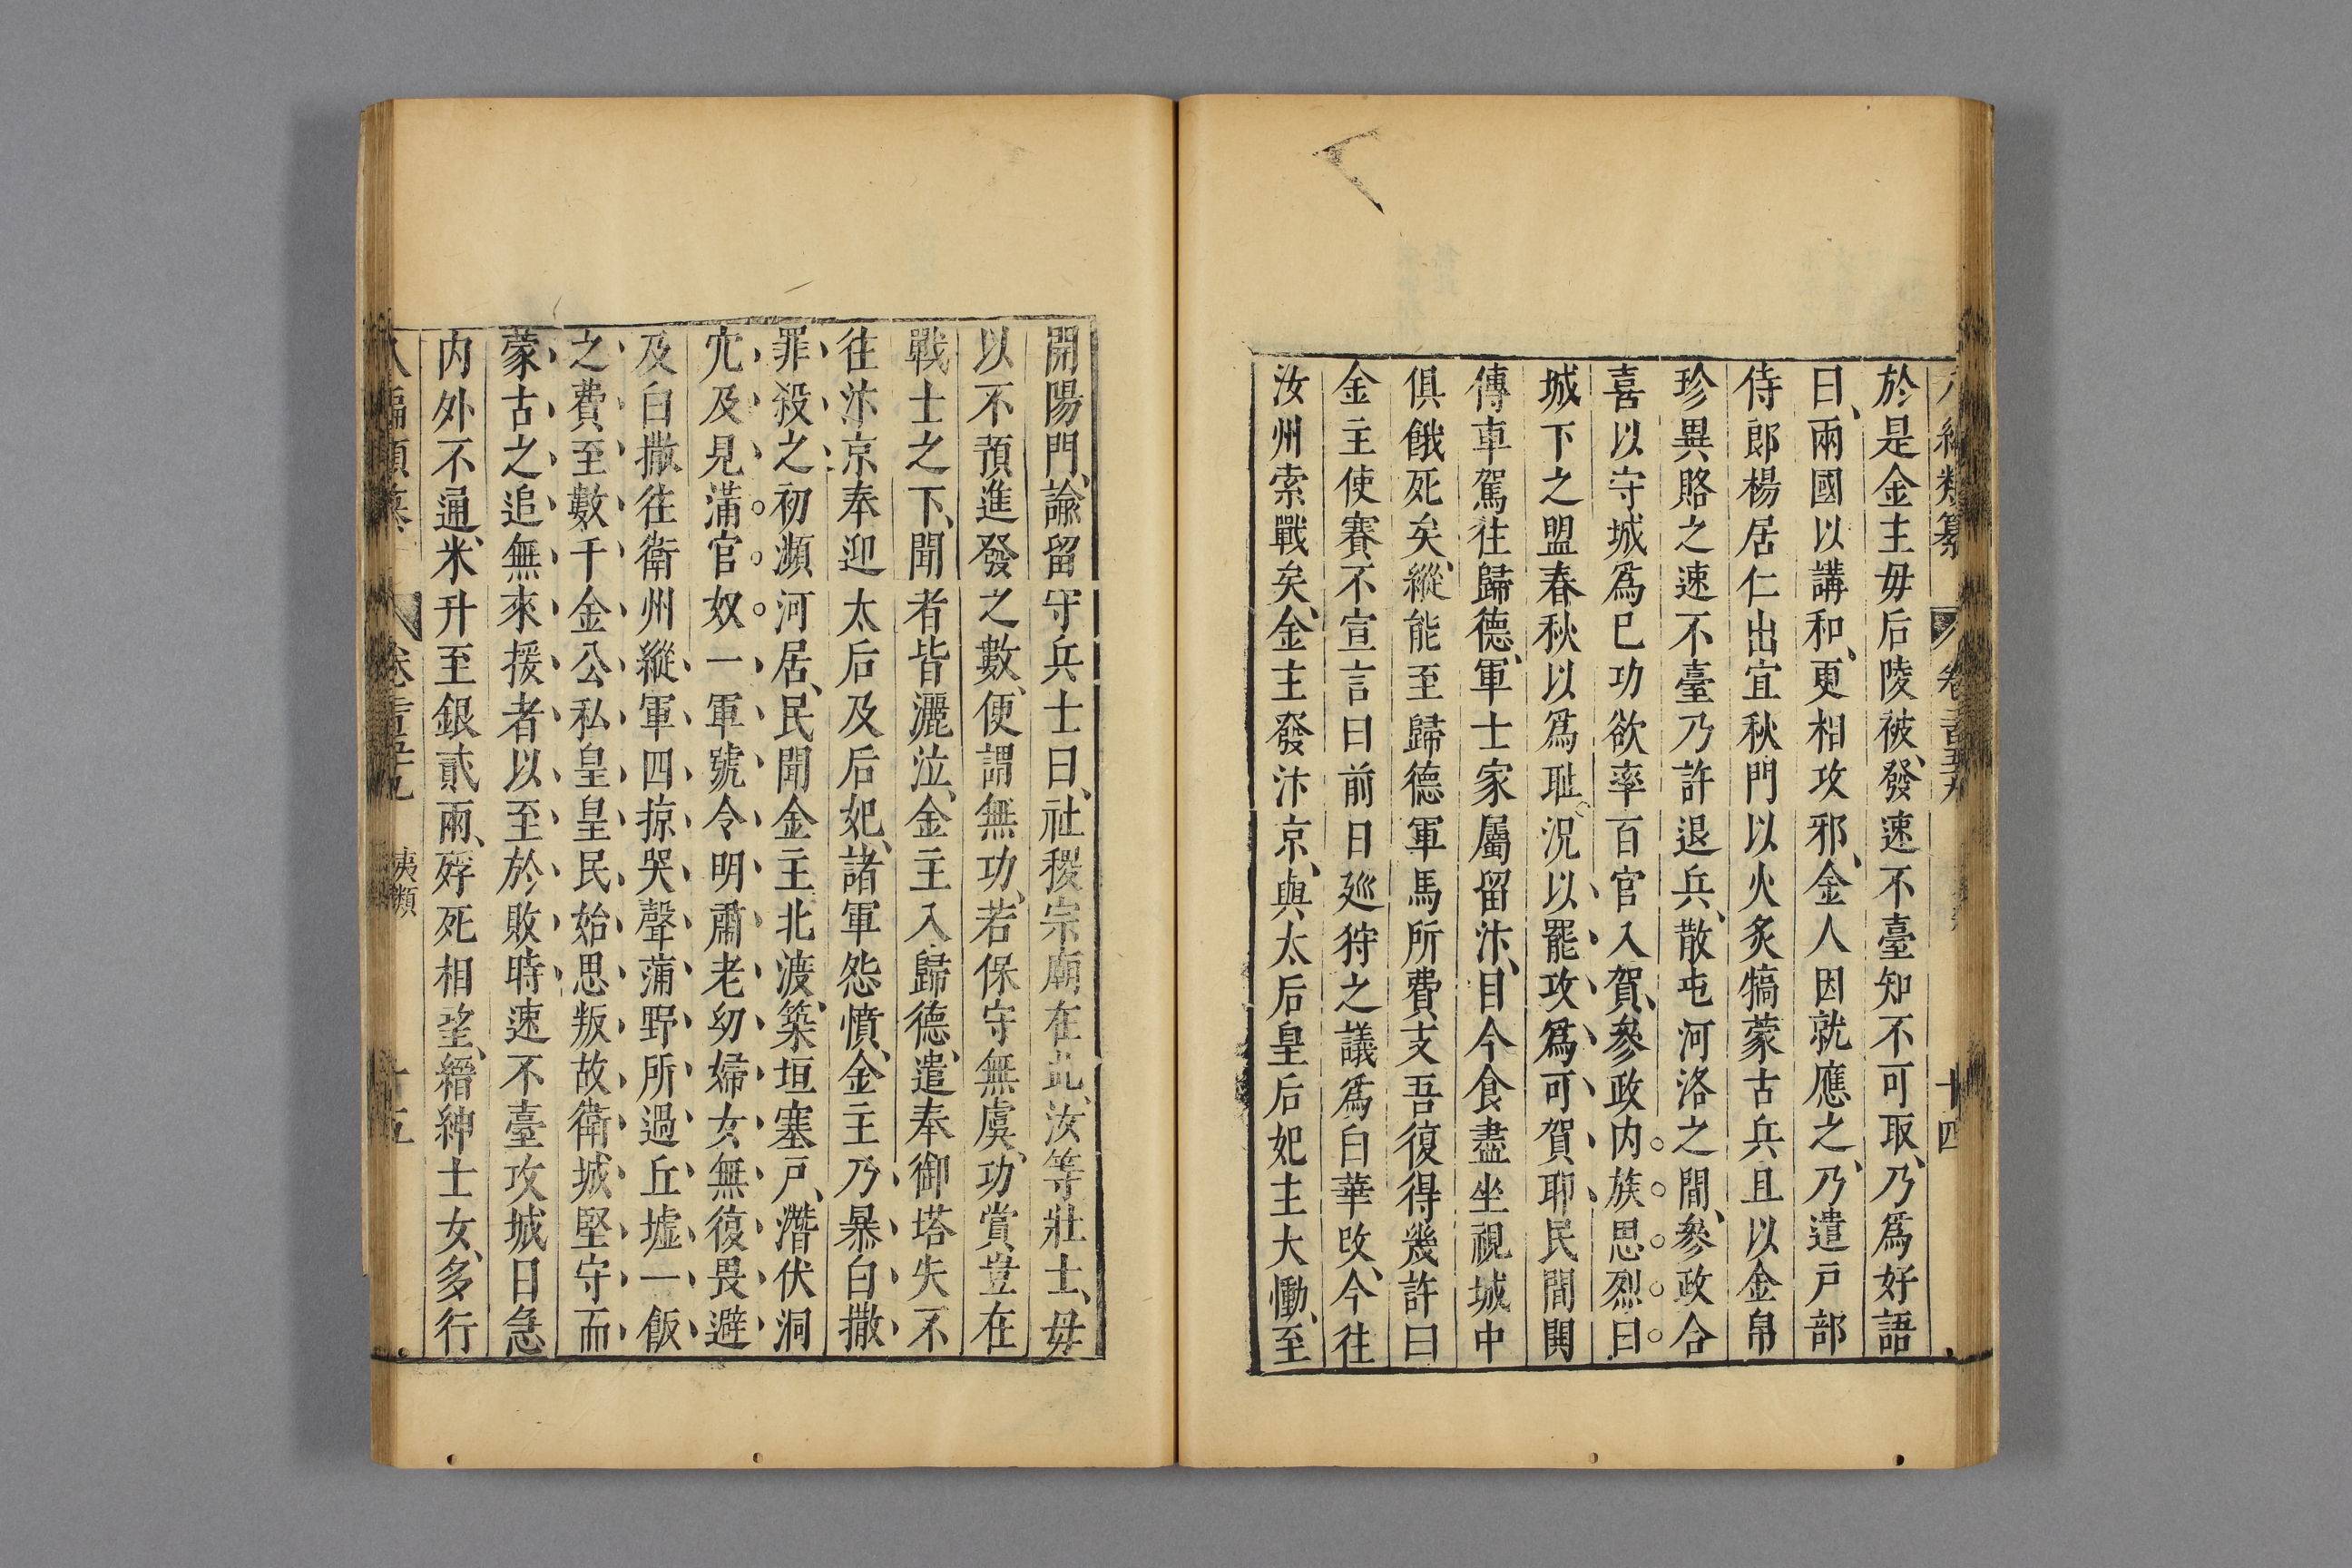 八編類纂 卷二百五十九 十四
於是金主毋后陵被、發速不臺知不可取、乃爲好語
曰、兩國以講和、更相攻邪、金人因就應之、乃遣戸部
侍郎楊居仁出宜秋門以火炙犒蒙古兵且以金帛
珍異賂之速不臺乃許退兵、散屯河洛之間、參政合
喜以守城爲已功欲率百官入賀、參政内族思烈曰
城下之盟春秋以爲耻況以罷攻爲可賀耶民間閧
傳車駕往歸德、軍士家屬留汴、目今食盡坐視城中
俱餓死矣、縱能至歸德軍馬所費支吾復得幾許曰
金主使賽不宣言曰前日廵狩之議爲白華改、今往
汝州索戰矣、金主發汴京、與太后皇后妃主大慟、至
開陽門、諭留守兵士曰、社稷宗廟在此、汝等壯士、毋
以不預進發之數、便謂無功、若保守無虞、功賞豈在
戰士之下、聞者皆灑泣、金主入歸德、遣奉御塔失不
往汴京奉迎太后及后妃、諸軍怨憤、金主乃暴白撒
罪殺之初瀕河居、民聞金主北渡、築垣塞戸、潛伏洞
穴及見蒲官奴一軍號令明肅老幼婦女無復畏避
及白撒往衛州縱軍四掠哭聲蒲野所過丘墟一飯
之費至數千金公私皇皇民始思叛故衛城堅守而
蒙古之追無來援者以至於敗時速不臺攻城日急
内外不通、米升至銀貳兩、殍死相望、縉紳士女、多行
八編類纂 卷二百五十九 夷類 十五